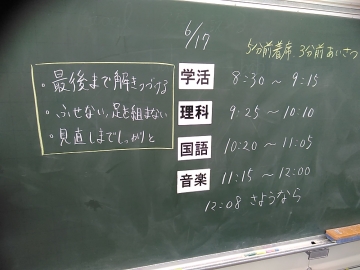 6/17
5分前着席、3分前あいさつ
・最後まで解きつづける
・ふせない、足を組まない
・見直しまでしっかりと
学活 8:30 ～ 9:15
理科 9:25 ～ 10:10
国語 10:20 ～ 11:05
音楽 11:15 ～ 12:00
12:08 さようなら